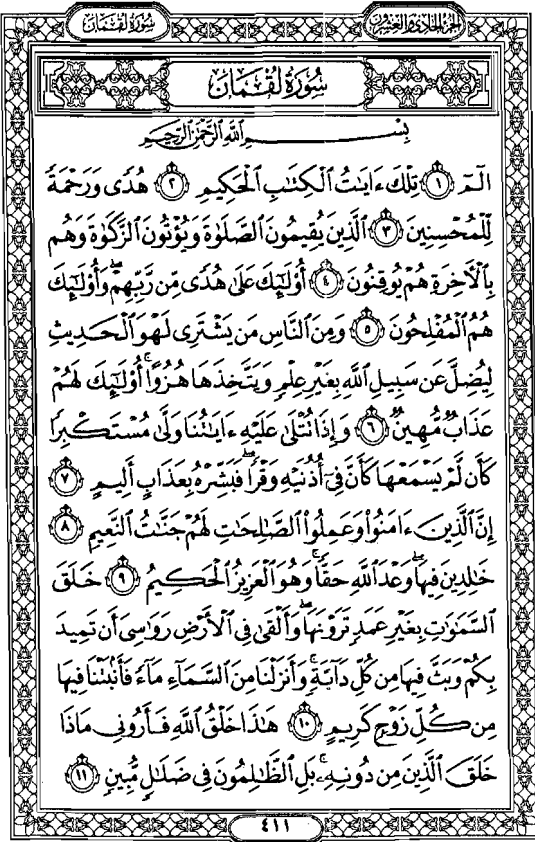 الجُزءُ الحَادِي وَالعِشْرُونَ
سُورَةُ لُقْمَان
سُورَةُ لُقْمَانَ
بِسْمِ ٱللَّهِ ٱلرَّحْمَٰنِ ٱلرَّحِيمِ
الٓمٓ ١ تِلْكَ ءَايَٰتُ ٱلْكِتَٰبِ ٱلْحَكِيمِ ٢ هُدًى وَرَحْمَةً
لِّلْمُحْسِنِينَ ٣ ٱلَّذِينَ يُقِيمُونَ ٱلصَّلَوٰةَ وَيُؤْتُونَ ٱلزَّكَوٰةَ وَهُم
بِٱلْءَاخِرَةِ هُمْ يُوقِنُونَ ٤ أُو۟لَٰٓئِكَ عَلَىٰ هُدًى مِّن رَّبِّهِمْ ۖ وَأُو۟لَٰٓئِكَ
هُمُ ٱلْمُفْلِحُونَ ٥ وَمِنَ ٱلنَّاسِ مَن يَشْتَرِى لَهْوَ ٱلْحَدِيثِ
لِيُضِلَّ عَن سَبِيلِ ٱللَّهِ بِغَيْرِ عِلْمٍ وَيَتَّخِذَهَا هُزُوًا ۚ أُو۟لَٰٓئِكَ لَهُمْ
عَذَابٌ مُّهِينٌ ٦ وَإِذَا تُتْلَىٰ عَلَيْهِ ءَايَٰتُنَا وَلَّىٰ مُسْتَكْبِرًا
كَأَن لَّمْ يَسْمَعْهَا كَأَنَّ فِىٓ أُذُنَيْهِ وَقْرًا ۖ فَبَشِّرْهُ بِعَذَابٍ أَلِيمٍ ٧
إِنَّ ٱلَّذِينَ ءَامَنُوا۟ وَعَمِلُوا۟ ٱلصَّٰلِحَٰتِ لَهُمْ جَنَّٰتُ ٱلنَّعِيمِ ٨
خَٰلِدِينَ فِيهَا ۖ وَعْدَ ٱللَّهِ حَقًّا ۚ وَهُوَ ٱلْعَزِيزُ ٱلْحَكِيمُ ٩ خَلَقَ
ٱلسَّمَٰوَٰتِ بِغَيْرِ عَمَدٍ تَرَوْنَهَا ۖ وَأَلْقَىٰ فِى ٱلْأَرْضِ رَوَٰسِىَ أَن تَمِيدَ
بِكُمْ وَبَثَّ فِيهَا مِن كُلِّ دَآبَّةٍ ۚ وَأَنزَلْنَا مِنَ ٱلسَّمَآءِ مَآءً فَأَنۢبَتْنَا فِيهَا
مِن كُلِّ زَوْجٍ كَرِيمٍ ١٠ هَٰذَا خَلْقُ ٱللَّهِ فَأَرُونِى مَاذَا
خَلَقَ ٱلَّذِينَ مِن دُونِهِۦ ۚ بَلِ ٱلظَّٰلِمُونَ فِى ضَلَٰلٍ مُّبِينٍ ١١
٤١١